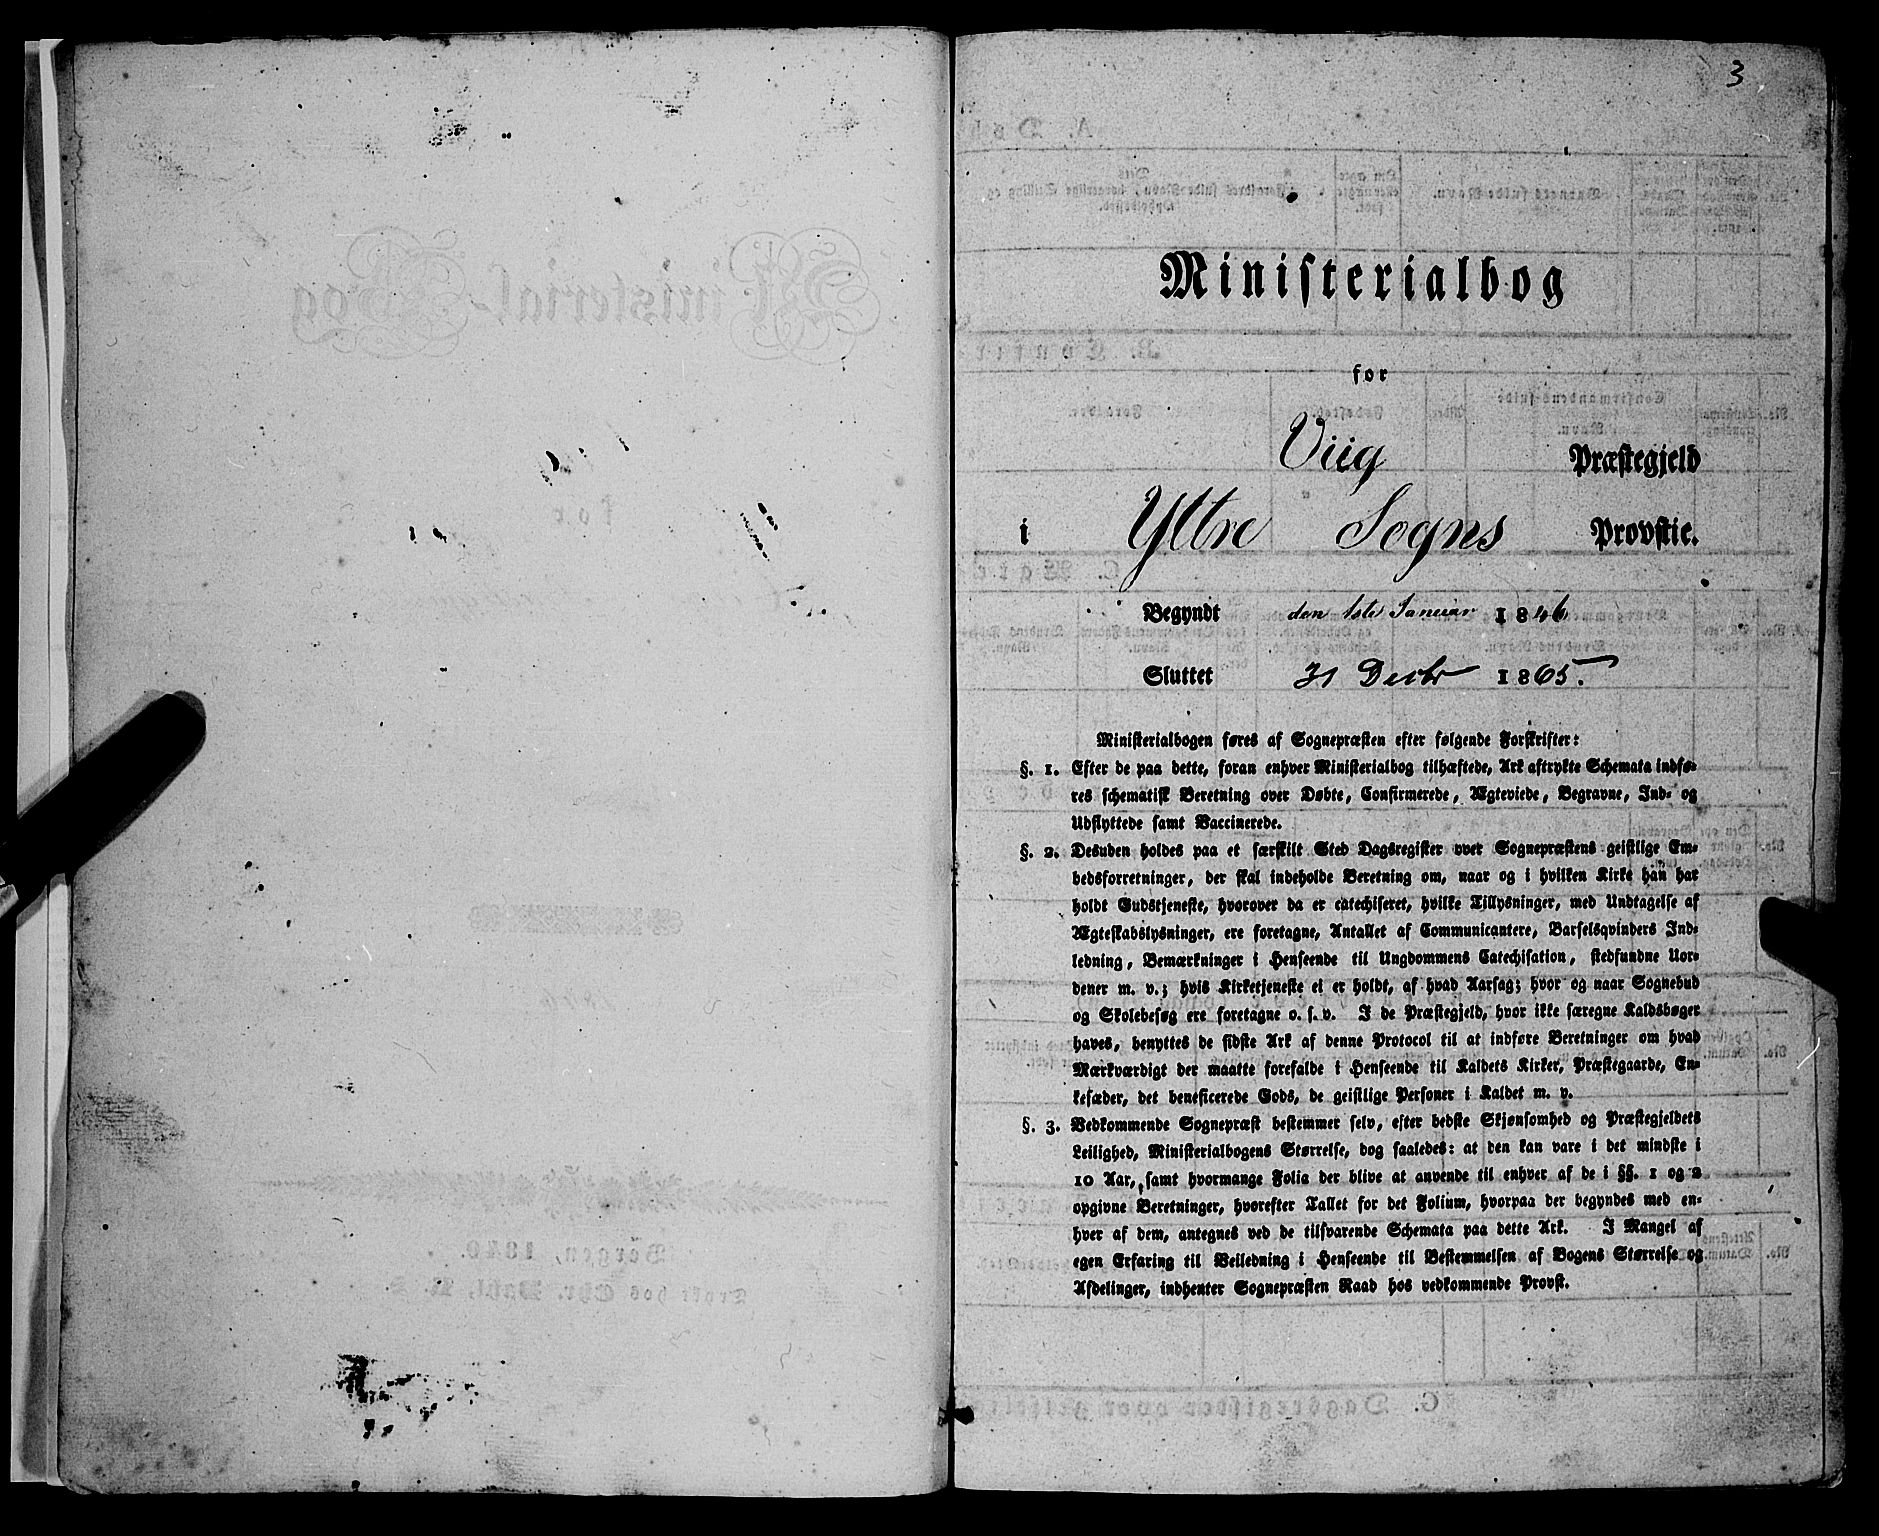 3
Ministerialbog
for
Viig Præstegjeld
i Yttre Sogns Provstie.
Begyndt den 1ste Januar 1846
Sluttet 31 Decbr 1865.
Ministerialbogen føres af Sognepræsten efter følgende Forskrifter:
§. 1. Efter de paa dette, foran enhver Ministerialbog tilhæftede, Ark aftrykte Schemata indfø-
res schematisk Beretning over Døbte, Confirmerede, Ægteviede, Begravne, Ind- og
Udflyttede samt Vaccinerede.
§. 2. Desuden holdes paa et særskilt Sted Dagsregister over Sognepræstens geistlige Em-
bedsforretninger, der skal indeholde Beretning om, naar og i hvilken Kirke han har
holdt Gudstjeneste, hvorover da er catechiseret, hvilke Tillysninger, med Undtagelse af
Ægteskabslysninger, ere foretagne, Antallet af Communicantere, Barselsqvinders Ind-
ledning, Bemærkninger i Henseende til Ungdommens Catechisation, stedfundne Uor-
dener m. v.; hvis Kirketjeneste ei er holdt, af hvad Aarsag; hvor og naar Sognebud
og Skolebesøg ere foretagne o. s. v. I de Præstegjeld, hvor ikke særegne Kaldsbøger
haves, benyttes de sidste Ark af denne Protocol til at indføre Beretninger om hvad
Mærkværdigt der maatte forefalde i Henseende til Kaldets Kirker, Præstegaarde, En-
kesæder, det beneficerede Gods, de geistlige Personer i Kaldet m. v.
§. 3. Vedkommende Sognepræst bestemmer selv, efter bedste Skjønsomhed og Præstegjeldets
Leilighed, Ministerialbogens Størrelse, dog saaledes: at den kan vare i det mindste i
10 Aar, samt hvormange Folia der blive at anvende til enhver af de i §§. 1 og 2
opgivne Beretninger, hvorefter Tallet for det Folium, hvorpaa der begyndes med en-
hver af dem, antegnes ved de tilsvarende Schemata paa dette Ark. I Mangel af
egen Erfaring til Veiledning i Henseende til Bestemmelsen af Bogens Størrelse og
Afdelinger, indhenter Sognepræsten Raad hos vedkommende Provst.